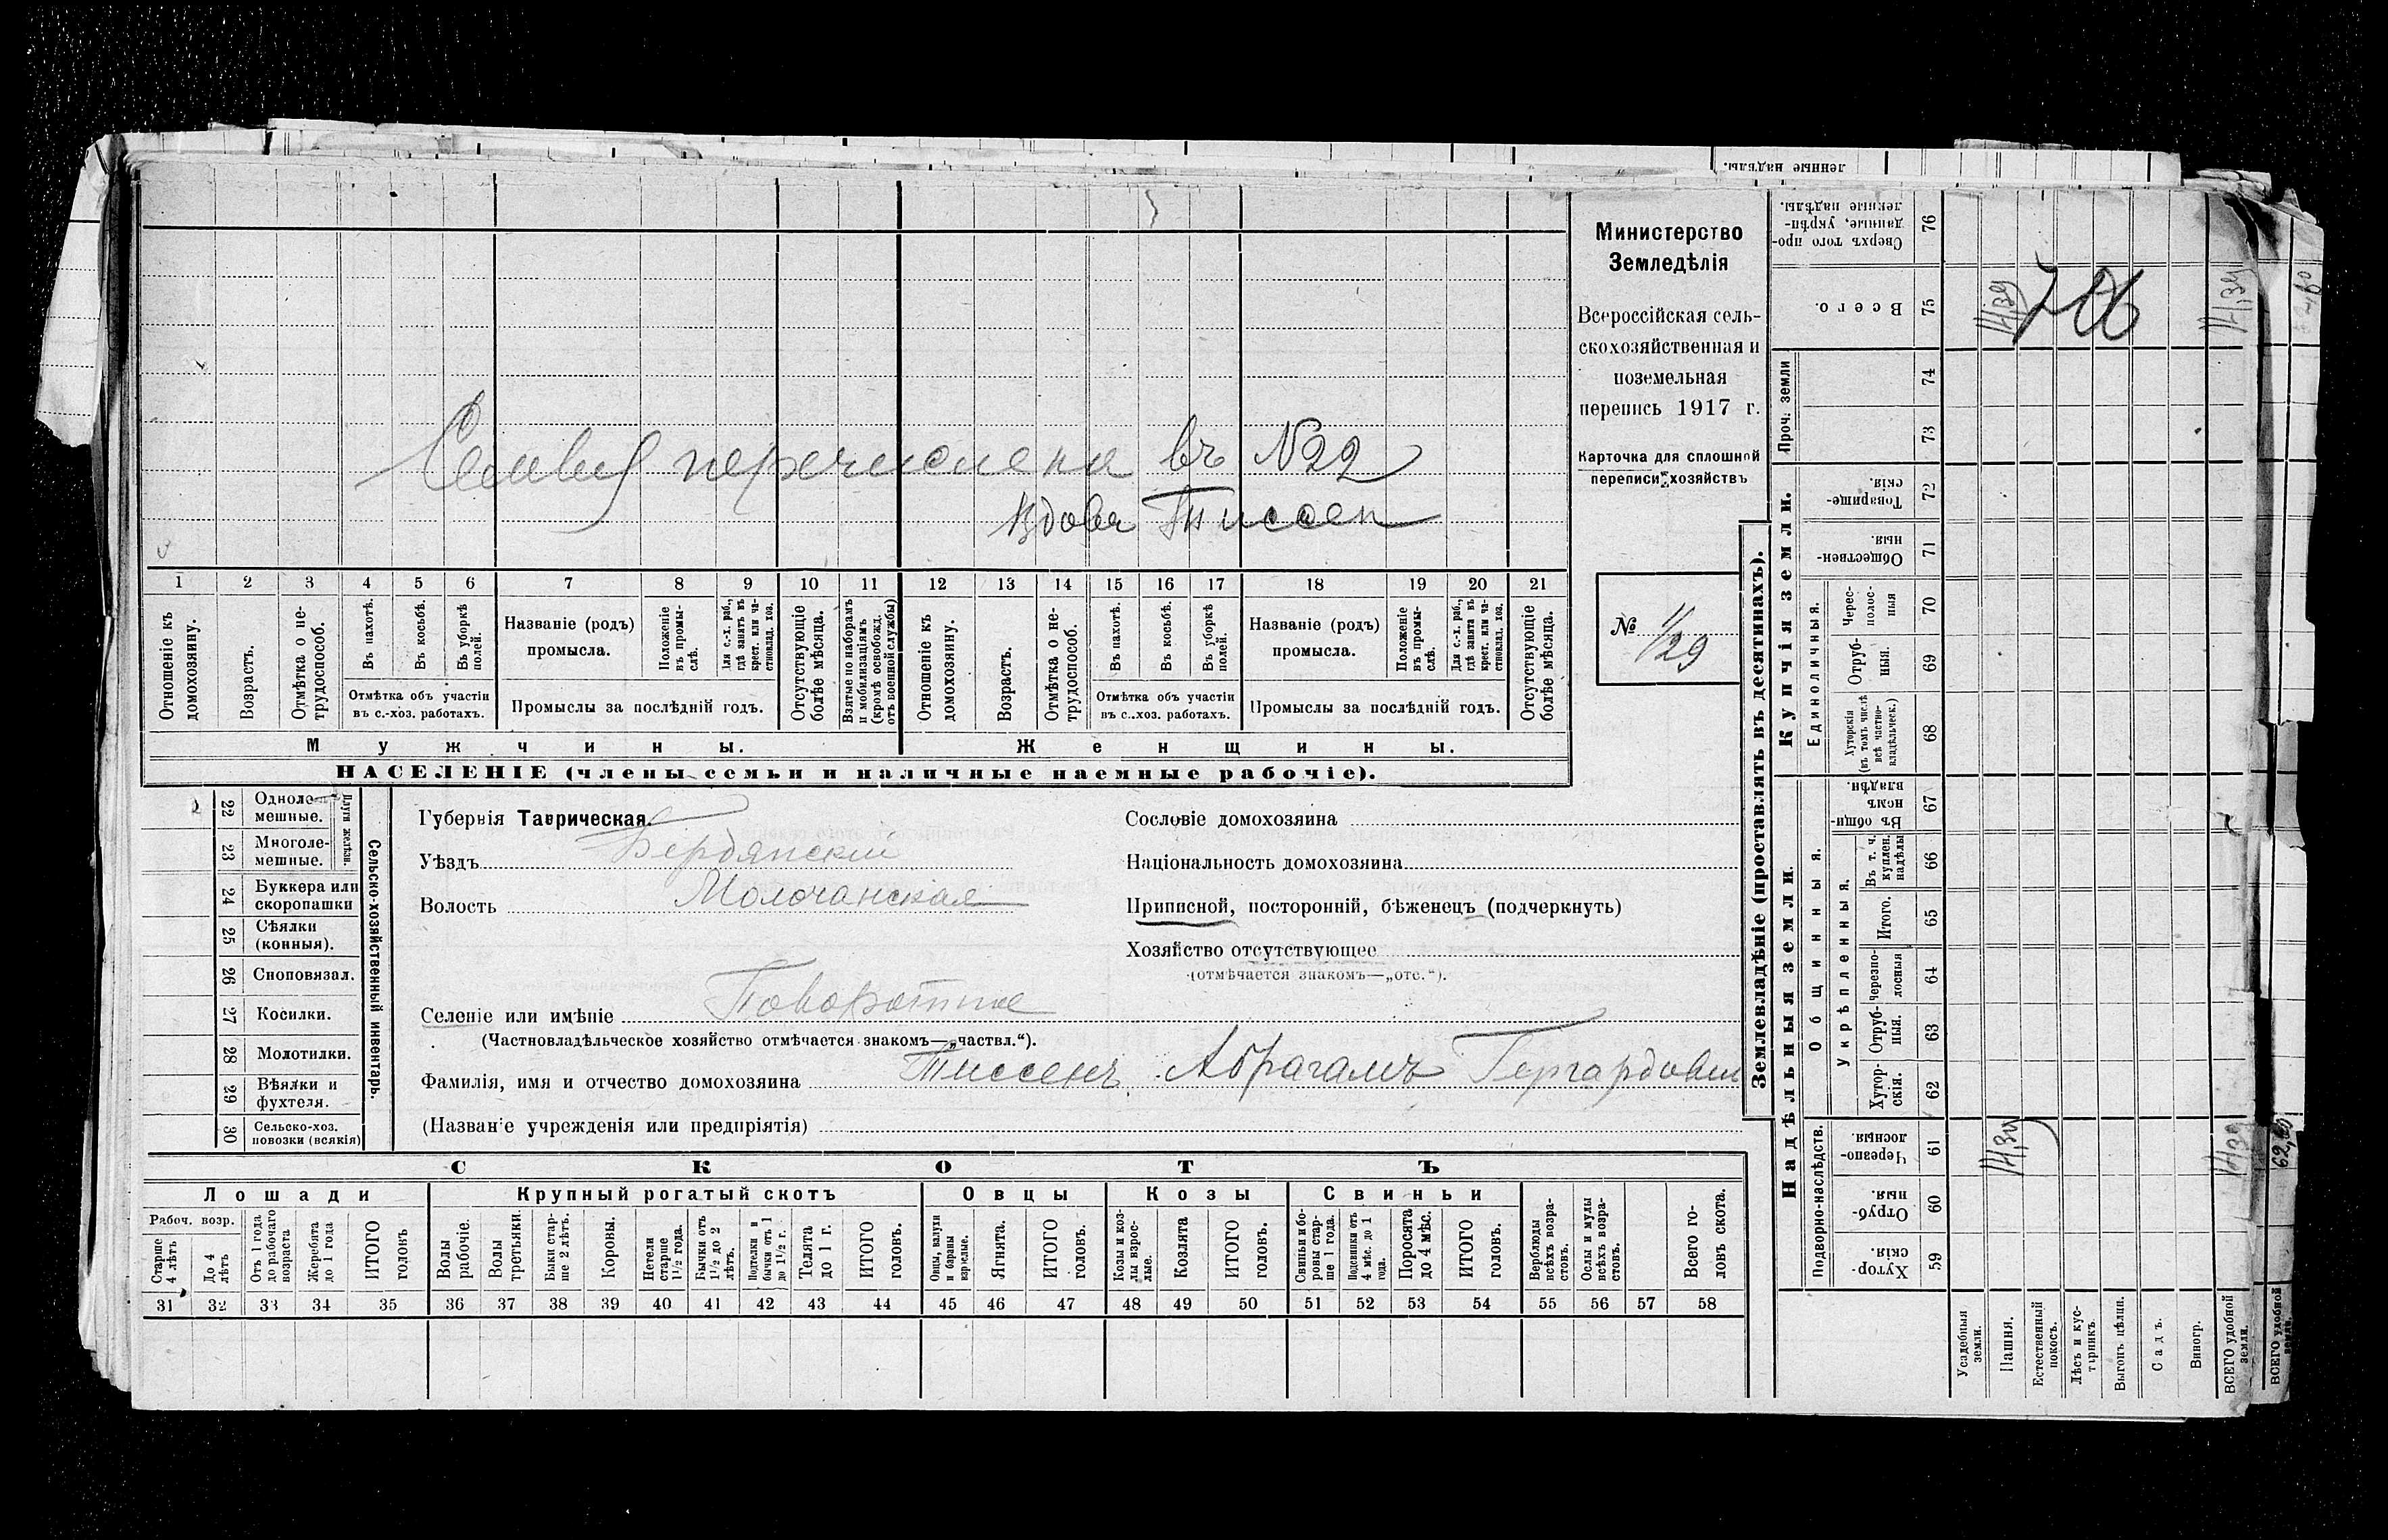 ленные надѣлы.
Семья перечислена въ №22
Вдова Тиссен
1 2 3 4 5 6 7 8 9 10 11 12 13 14 15 16 17 18 19 20 21
Отношеніе къ домохозяину.
Возрастъ.
Отмѣтка о нетрудоспособ.
Въ пахотѣ.
Въ косьбѣ.
Въ уборкѣ полей.
Отмѣтка объ участіи
въ с.-хоз. работахъ.
Названіе (родъ)
промысла.
Положеніе въ промыслѣ.
Для с.-х. раб., гдѣ занятъ въ крест. или частновлад. хоз.
Промыслы за послѣдній годъ.
Отсутствующіе болѣе мѣсяца.
Взятые по наборамъ и мобилизаціямъ (кромѣ освобожд. отъ военной службы)
Отношеніе къ домохозяину.
Возрастъ.
Отмѣтка о нетрудоспособ.
Въ пахотѣ.
Въ косьбѣ.
Въ уборкѣ полей.
Отмѣтка объ участіи
въ с.-хоз. работахъ.
Названіе (родъ)
промысла.
Положеніе въ промыслѣ.
Для с.-х. раб., гдѣ занята въ крест. или частновлад. хоз.
Промыслы за послѣдній годъ.
Отсутствующіе болѣе мѣсяца.
Мужчины.
Женщины.
НАСЕЛЕНІЕ (члены семьи и наличные наемные рабочіе).
Министерство
Земледѣлія
Всероссійская сель-
скохозяйственная и
поземельная
перепись 1917 г.
Карточка для сплошной
переписи хозяйствъ
№ 1/29
22 Одноле-
мешные.
23 Многоле-
мешные.
Плуги желѣзн.
24 Буккера или
скоропашки
25 Сѣялки
(конныя).
26 Сноповязал.
27 Косилки.
28 Молотилки.
29 Вѣялки и
фухтеля.
30 Сельско-хоз.
повозки (всякія)
Сельско-хозяйственный инвентарь.
Губернія Таврическая.
Уѣздъ Бердянскій
Волость Молочанская
Селеніе или имѣніе Поворотное
(Частновладѣльческое хозяйство отмѣчается знакомъ—„частвл.“).
Фамилія, имя и отчество домохозяина Тиссенъ Абрагамъ Гергардович
(Названіе учрежденія или предпріятія)
Сословіе домохозяина
Національность домохозяина
Приписной, посторонній, бѣженецъ (подчеркнуть)
Хозяйство отсутствующее
(отмѣчается знакомъ—„отс.“).
СКОТЪ
Лошади
Крупный рогатый скотъ
Овцы
Козы
Свиньи
Рабоч. возр.
Старше 4 лѣтъ
До 4 лѣтъ
Отъ 1 года до рабочаго возраста
Жеребята до 1 года
ИТОГО головъ
Волы рабочіе.
Волы третьяки.
Быки старше 2 лѣтъ.
Коровы.
Нетели старше 1½ года.
Бычки отъ 1½ до 2 лѣтъ.
Подтелки и бычки отъ 1 до 1½ г.
Телята до 1 г.
ИТОГО головъ.
Овцы, валухи и бараны взрослые.
Ягнята.
ИТОГО головъ.
Козы и козлы взрослые.
Козлята
ИТОГО головъ.
Свиньи и боровы старше 1 года.
Подсвинки отъ 4 мѣс. до 1 года.
Поросята до 4 мѣс.
ИТОГО головъ.
Верблюды всѣхъ возрастовъ.
Ослы и мулы всѣхъ возрастовъ.
Всего головъ скота.
31 32 33 34 35 36 37 38 39 40 41 42 43 44 45 46 47 48 49 50 51 52 53 54 55 56 57 58
Землевладѣніе (проставлять въ десятинахъ).
Купчія земли.
Надѣльныя земли.
Сверхъ того проданные, укрѣпленные надѣлы. 76
Всего. 75
14,39
14,39
Проч. земли
74
73
Товарищескія. 72
Общественныя. 71
Единоличныя.
Чересполосныя 70
Отрубныя. 69
Хуторскія (въ томъ числѣ всѣ частновладѣльческ.) 68
Общинныя.
Въ общинномъ владѣн. 67
Укрѣпленныя.
Въ т. ч. куплен. надѣлы 66
Итого. 65
Черезполосныя 64
Отрубныя. 63
Хуторскія. 62
Подворно-наслѣдств.
Черезполосныя 61
14,39
14,39
Отрубныя. 60
Хуторскія. 59
Усадебныя земли.
Пашня.
Естественный покосъ.
Лѣсъ и кустарникъ.
Выгонъ цѣлин.
Садъ.
Виногр.
ВСЕГО удобной земли.
ВСЕГО удобной земли.